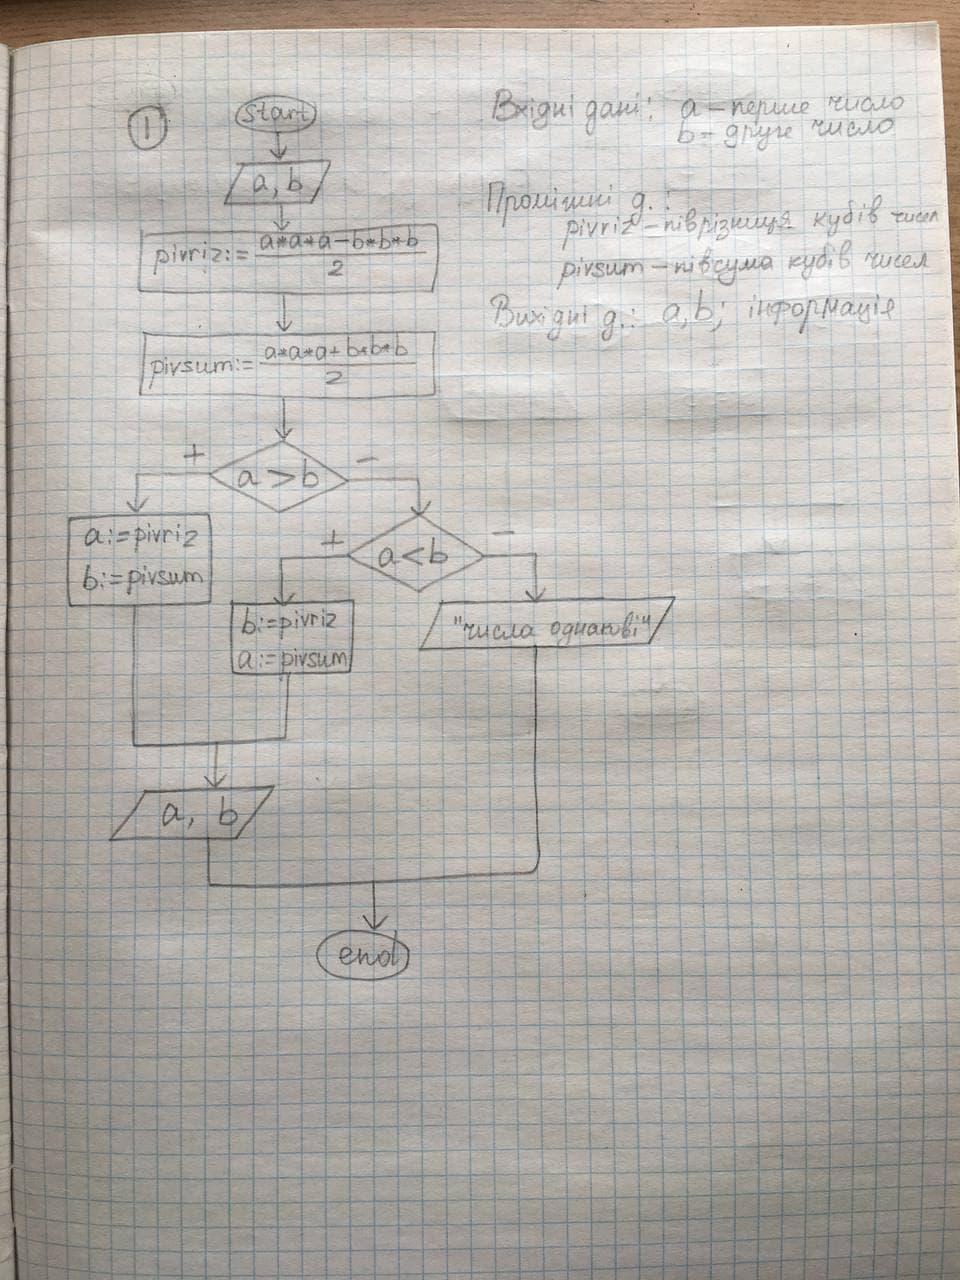 1
start
a, b
pivriz:= a*a*a-b*b*b
2
pivsum:= a*a*a+b*b*b
2
a > b
+
-
a:=pivriz
b:=pivsum
a < b
+
-
b:=pivriz
a:=pivsum
"числа однакові"
a, b
end
Вхідні дані: a – перше число
b – друге число
Проміжні д.:
pivriz – піврізниця кубів чисел
pivsum – півсума кубів чисел
Вихідні д.: a, b; інформація